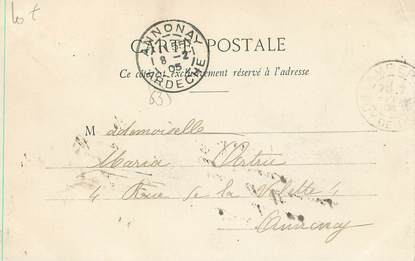 Lot
ANNONAY
8 -2
05
ARDECHE
CARTE POSTALE
Ce côté est exclusivement réservé à l'adresse
Mademoiselle
Maria
4 Rue de la Valette 4
Annonay